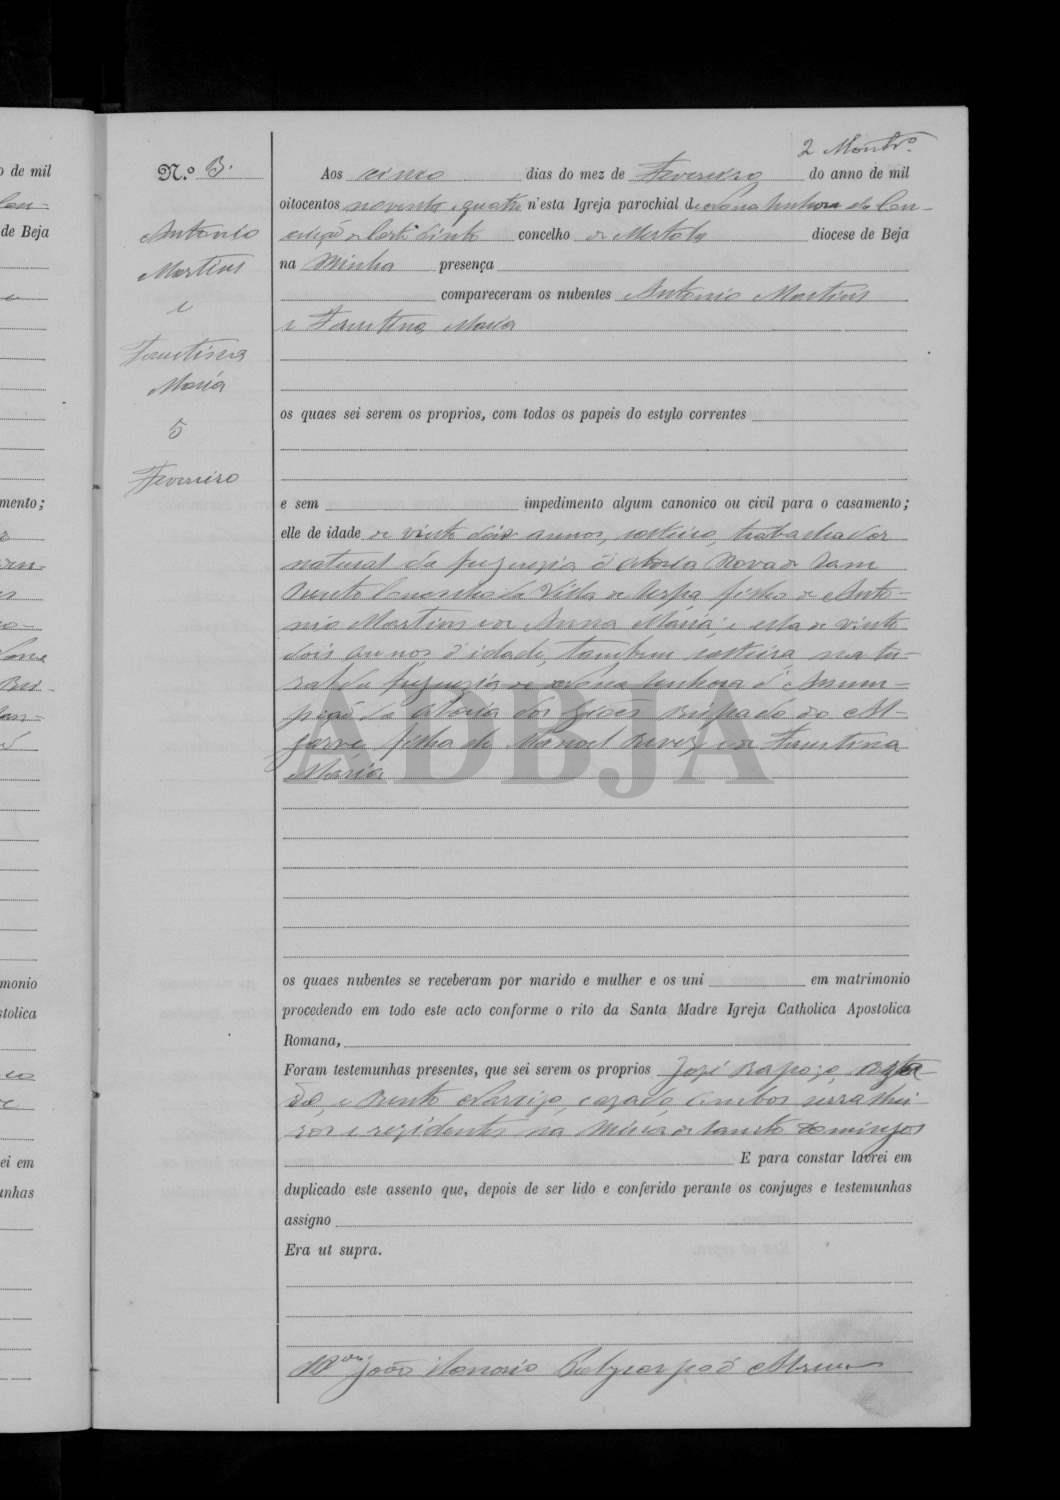 2
N.º 3.
Aos cinco dias do mez de Fevereiro do anno de mil
oitocentos noventa e quatro n'esta Igreja parochial de Nossa Senhora da Con-
ceição de Corte do Pinto concelho de Mertola diocese de Beja
na Minha presença
compareceram os nubentes Antonio Martins
e Faustina Maria
Antonio
Martins
e
Faustina
Maria
5
Fevereiro
os quaes sei serem os proprios, com todos os papeis do estylo correntes
e sem impedimento algum canonico ou civil para o casamento;
elle de idade de vinte dois annos, solteiro, trabalhador
natural da freguezia d'Aldeia Nova de Sam
Bento Concelho da Villa de Serpa filho de Anto-
nio Martins e de Anna Maria; e ella de vinte
dois annos d'idade, tambem solteira, natu-
ral da freguezia de Nossa Senhora d'Assum-
pção da Aldeia dos Giões Bispado do Al-
garve filha de Manoel Revez e de Faustina
Maria
ADBJA
os quaes nubentes se receberam por marido e mulher e os uni em matrimonio
procedendo em todo este acto conforme o rito da Santa Madre Igreja Catholica Apostolica
Romana,
Foram testemunhas presentes, que sei serem os proprios José Rapozo,
e Bento cazado, ambos serralhei-
ros e rezidentes na Mina de Sancto Domingos
E para constar lavrei em
duplicado este assento que, depois de ser lido e conferido perante os conjuges e testemunhas
assigno
Era ut supra.
João
o de mil
de Beja
mento;
monio
stolica
ei em
unhas